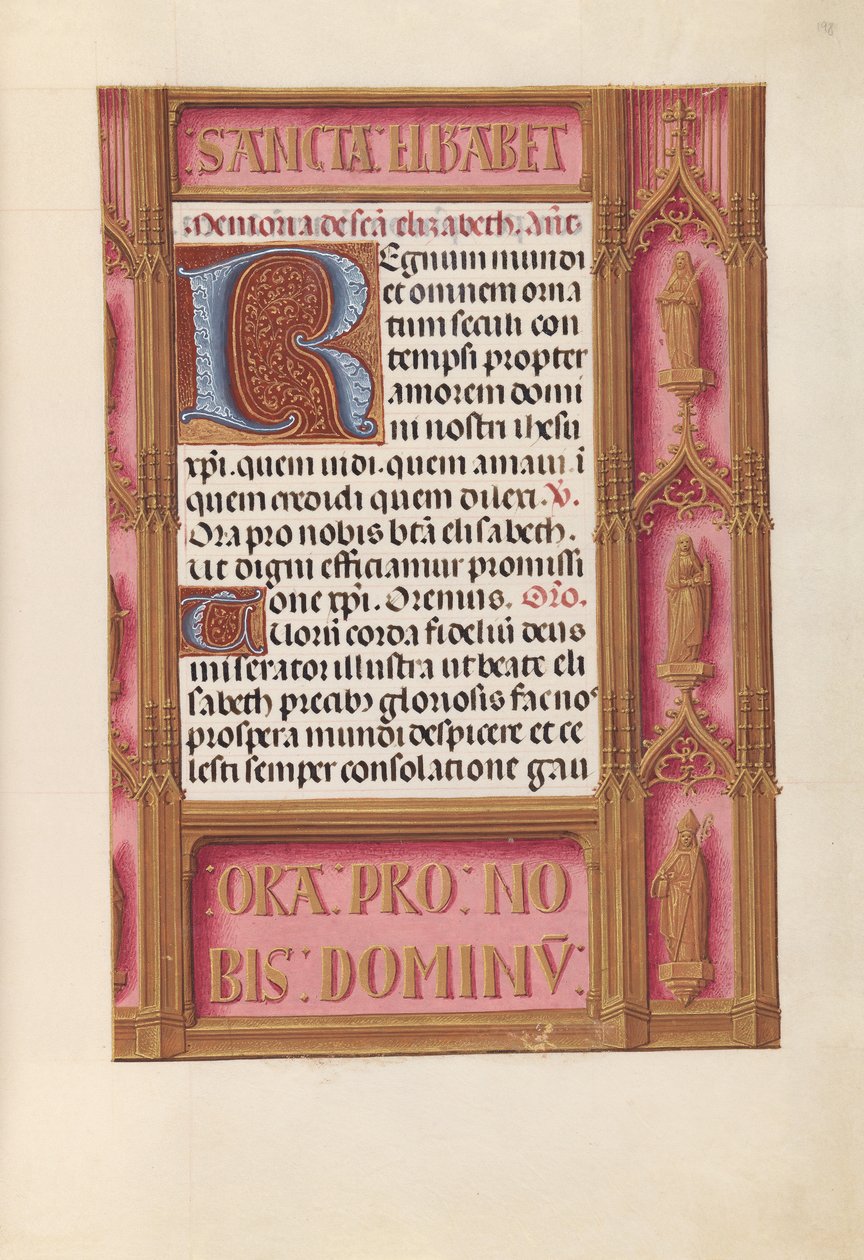 198
·SANCTA·ELIZABET
Memoria de scā elizabeth. Ant
Regnum mundi
et omnem orna
tum seculi con
tempsi propter
amorem domi
ni nostri ihesu
xpī. quem uidi. quem amaui. ī
quem credidi quem dilexi. V̄.
Ora pro nobis btā elisabeth.
Ut digni efficiamur promissi
one xpī. Oremus. Orō.
Tuorū corda fideliū deus
miserator illustra ut beate eli
sabeth precibꝫ gloriosis fac nos
prospera mundi despicere et ce
lesti semper consolatione gau
:ORA:PRO:NO
BIS:DOMINŪ: